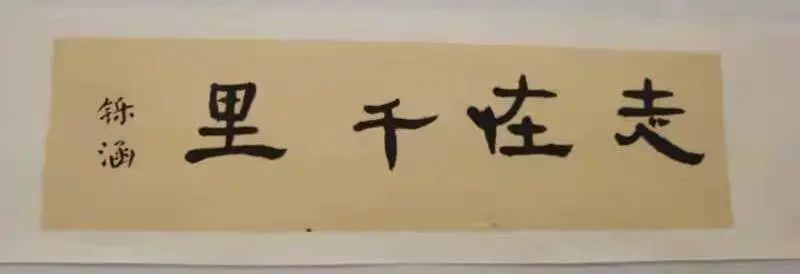 志在千里
铄涵